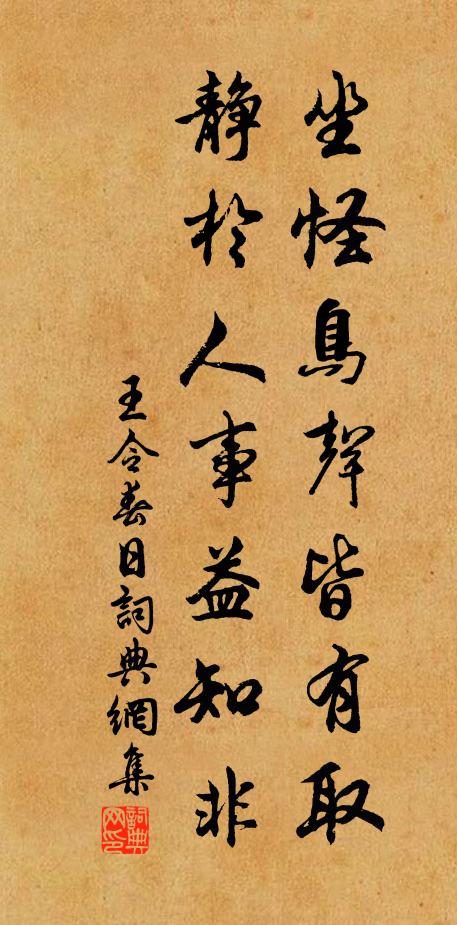 坐怪鳥聲皆有取
靜於人事益知非
王令春日詞典網集
詞典網印